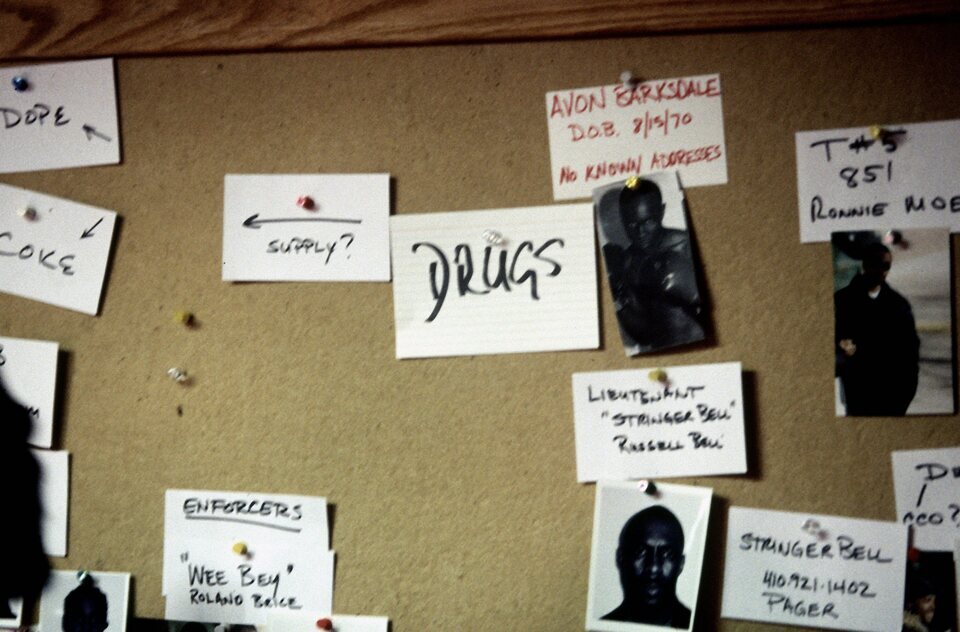 DOPE
COKE
SUPPLY?
DRUGS
AVON BARKSDALE
D.O.B. 8/15/70
NO KNOWN ADDRESSES
T#5
851
RONNIE MOE
LIEUTENANT
"STRINGER BELL"
RUSSELL BELL
ENFORCERS
"WEE BEY"
ROLAND BRICE
STRINGER BELL
410.921.1402
PAGER